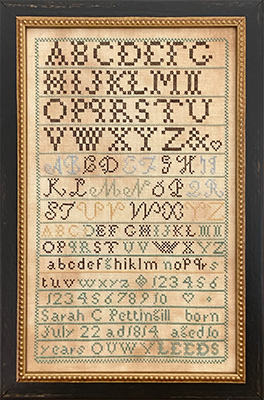 ABCDEFG
HIJKLM
OPQRSTU
VWXYZ&
AB CD EF GH IJ
KL MN OP QR
ST UV WX YZ
ABCDEFGHIJKLM
OPQRSTUVWXYZ
abcdefghiklm nopqrs
tuvwxyz 123456
12345678910
Sarah C Pettingill born
July 22 ad 1814 aged 10
years OUWY LEEDS